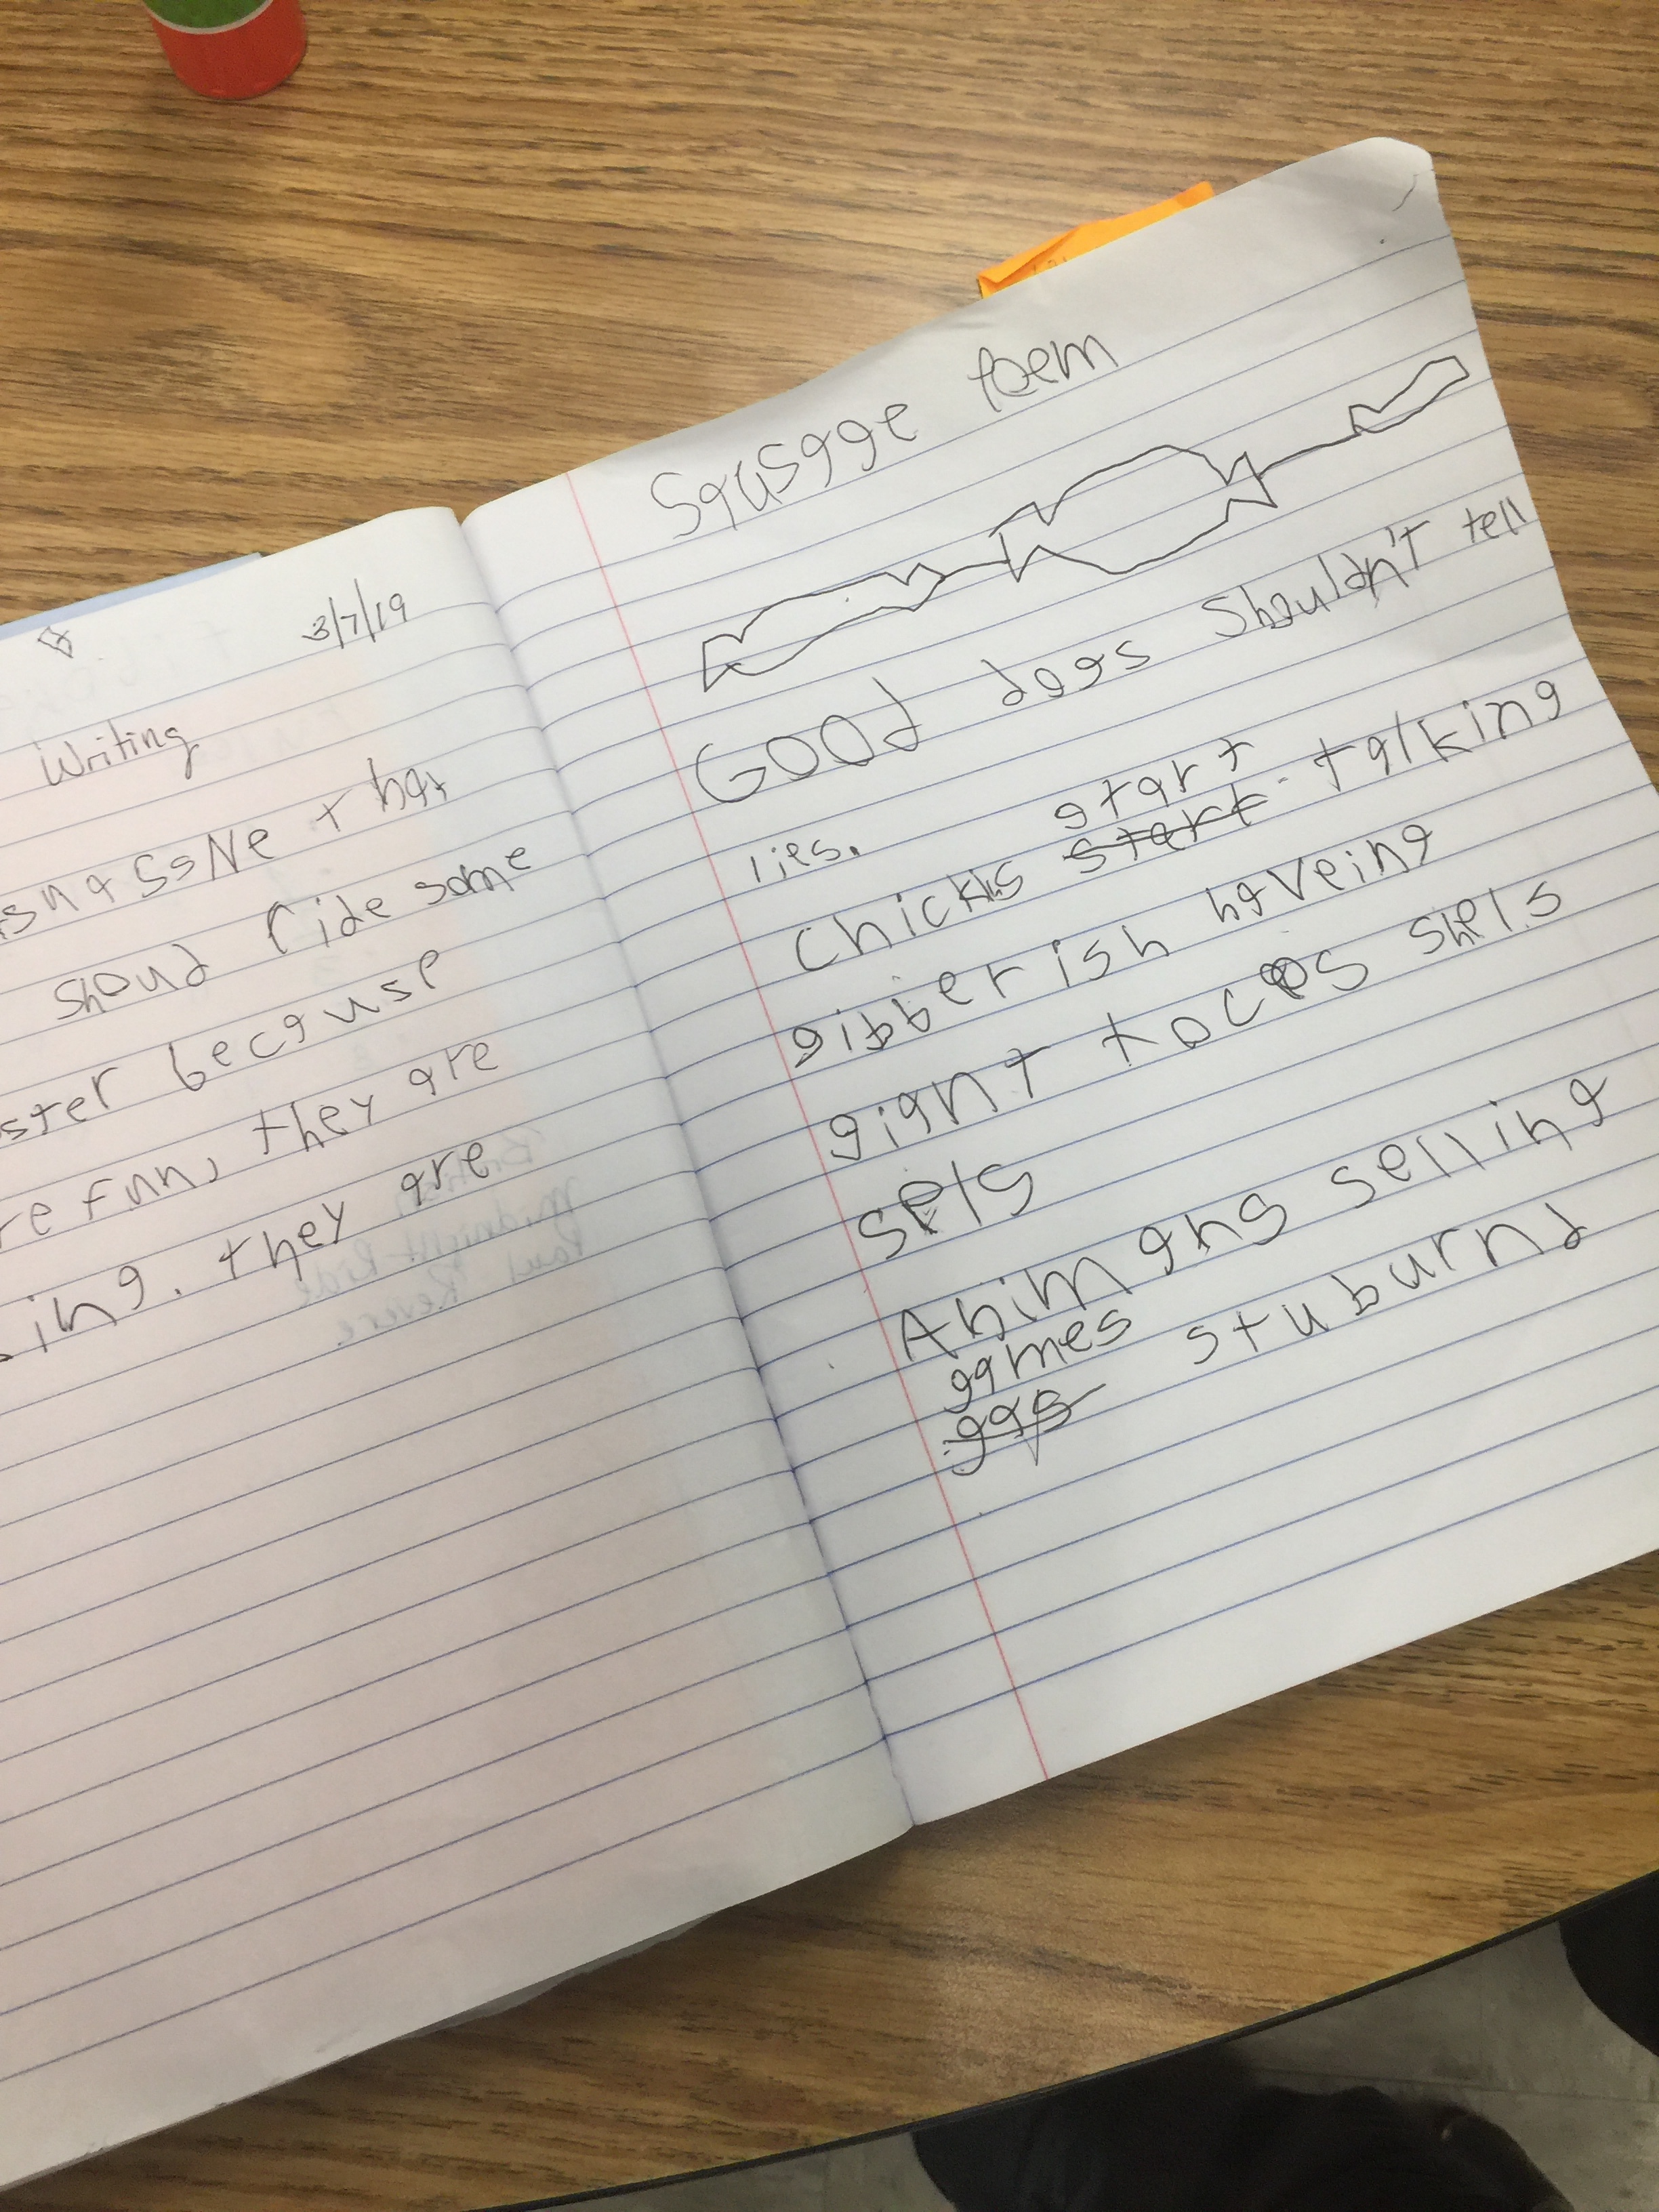 3/7/19
Writing
that
shoud ride some
ster because
re fun, they are
ing. they are
Sausage Poem
Good dogs shouldn't tell
lies.
start
Chicks start talking
gibberish haveing
giant tacos shels
sels
Animans selling
games
stuburnd